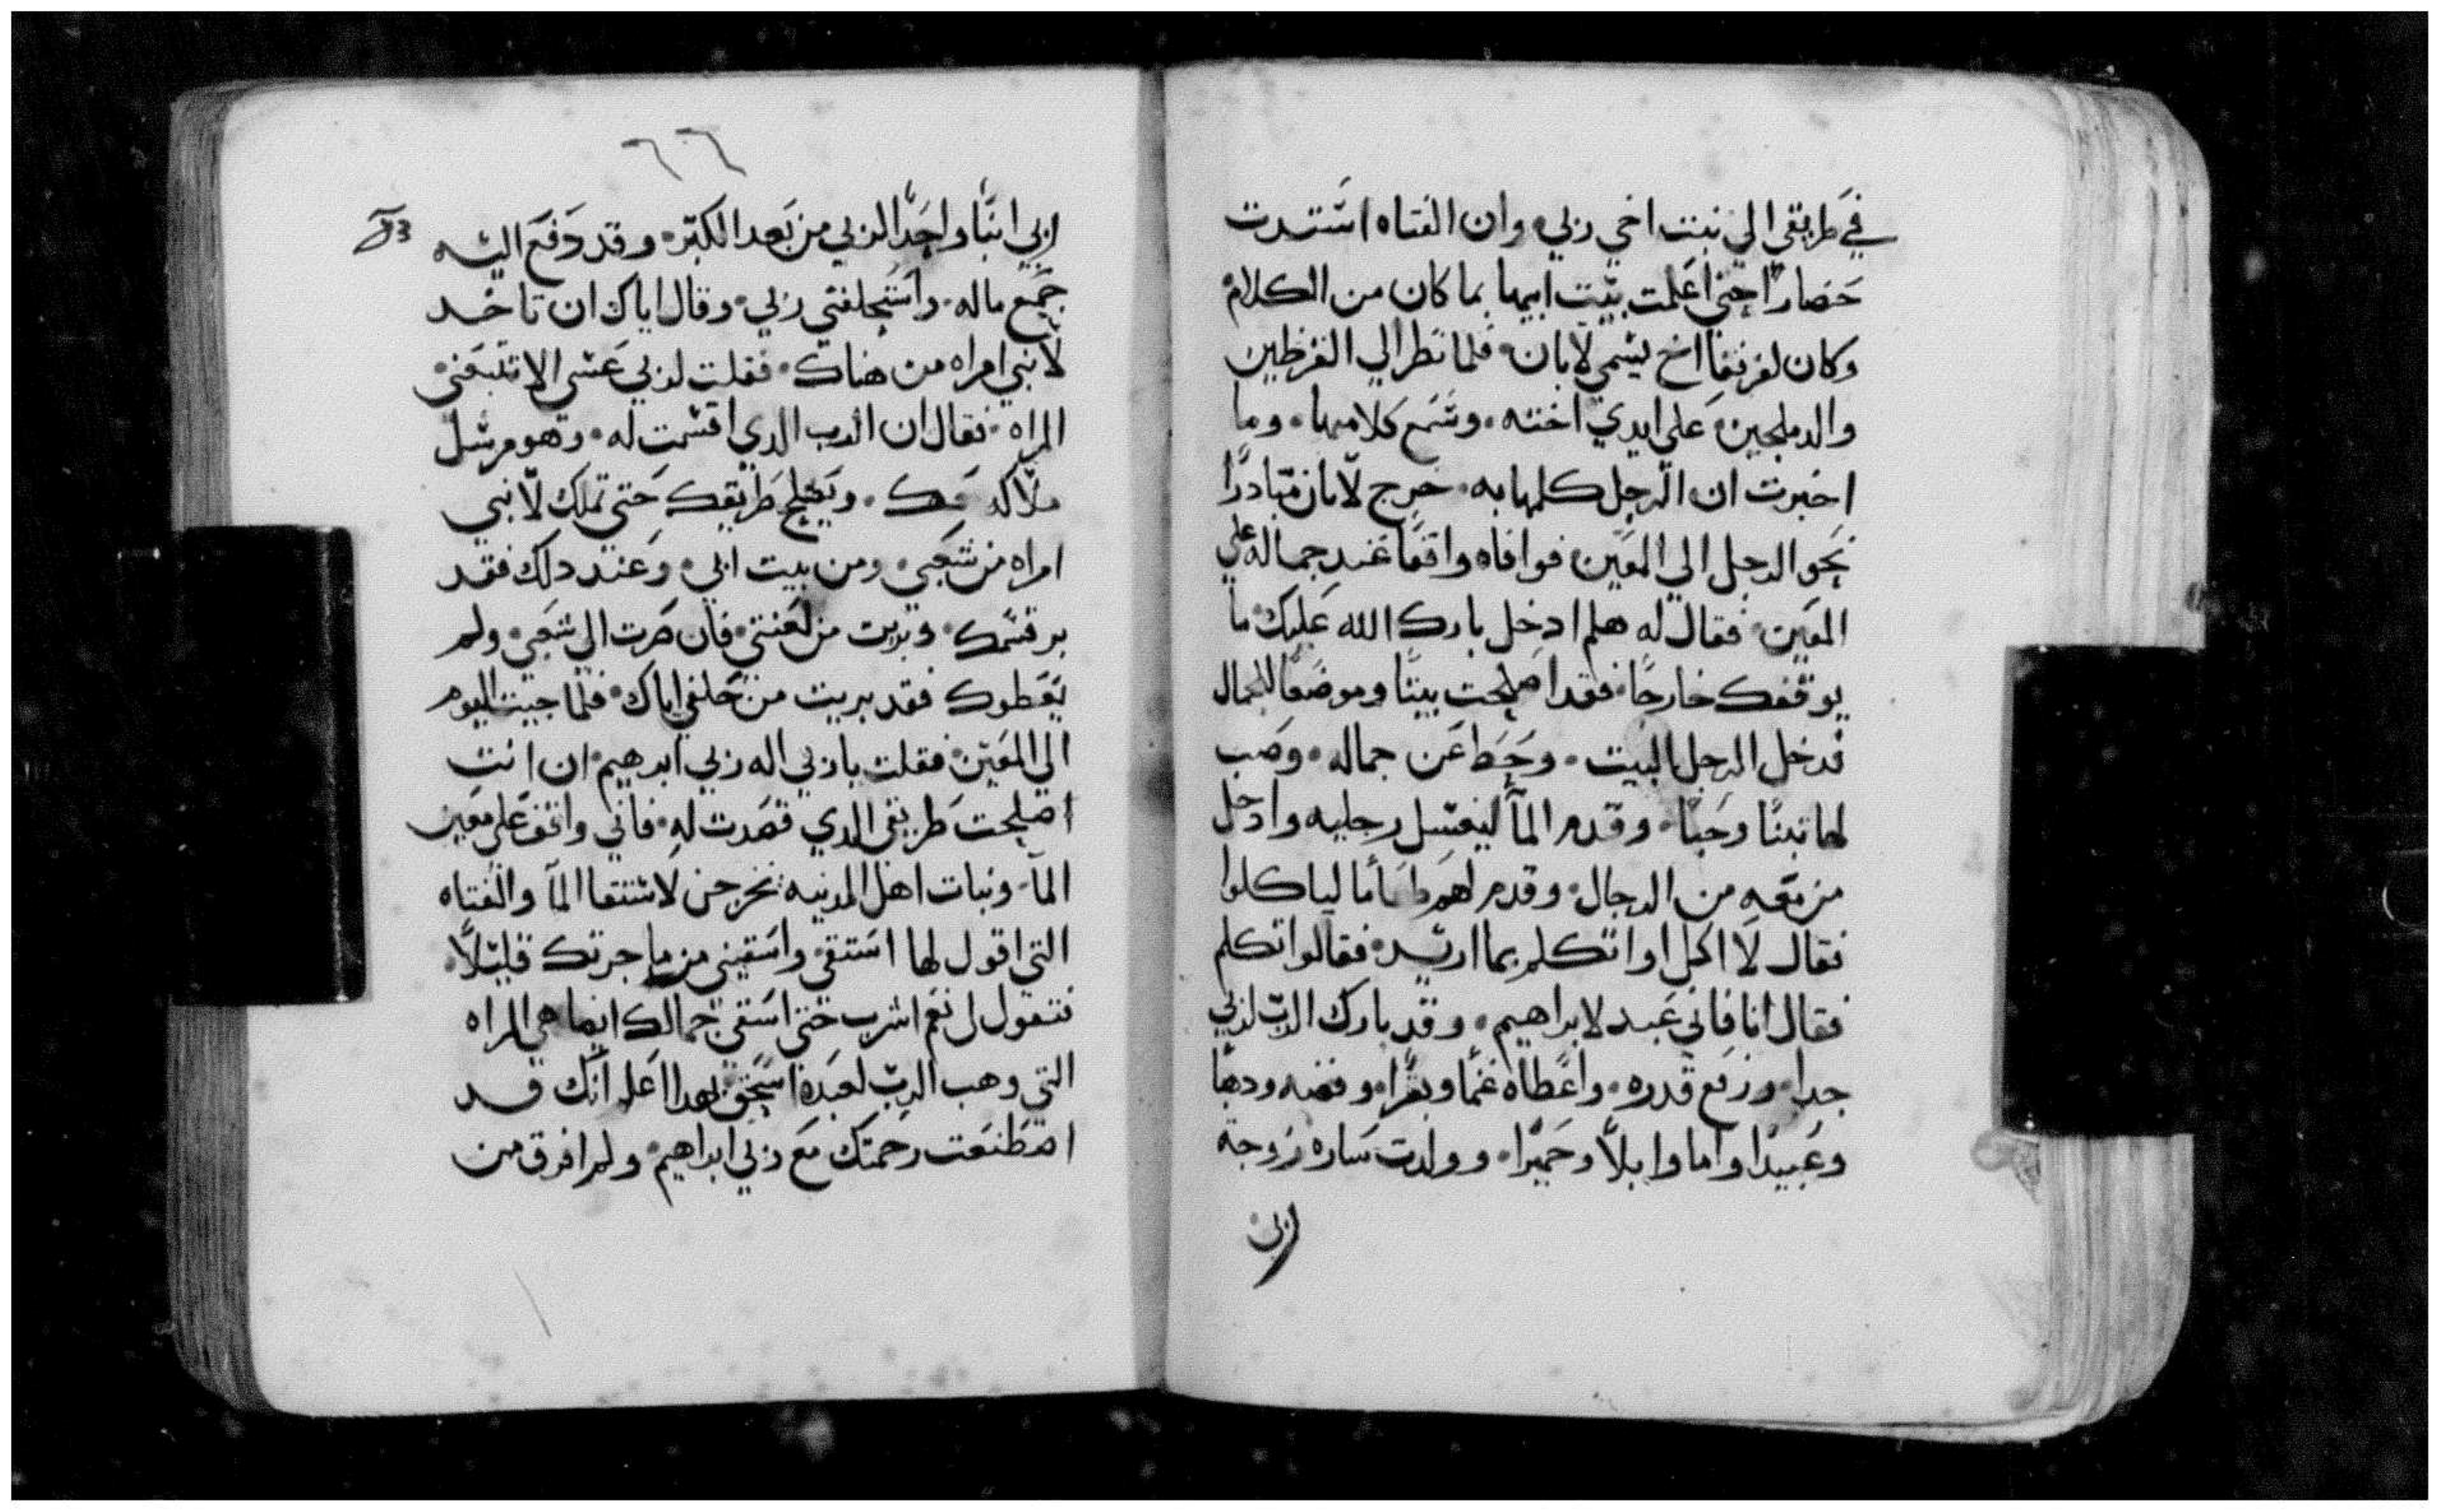 في طريقي الي بنت اخي ربي وان الفتاه اشتدت
حضارًا حتي اعلمت بيت ابيها بما كان من الكلام
وكان لفرنقا اخ يسمي لابان فلما نظر الي القرطين
والدملجين علي ايدي اخته وسمع كلامها وما
اخبرت ان الرجل كلمها به خرج لابان مبادرًا
نحو الرجل الي المعين فوافاه واقفا عند جماله علي
المعين فقال له هلم ادخل بارك الله عليك ما
يوقفك خارجًا فقد اصلحت بيتًا وموضعًا للجمال
فدخل الرجل البيت وحط عن جماله وصب
لها تبنًا وحبًا وقدم المآ ليغسل رجليه وادخل
من معه من الرجال وقدم لهم طعامًا لياكلوا
فقال لا اكل او اتكلم بما اريد فقالوا تكلم
فقال انا فاني عبد لابراهيم وقد بارك الرب لربي
جدا ورفع قدره واعطاه غنمًا وبقرًا وفضه ودهبًا
وعبيدًا واما وابلاً وحميرًا وولدت ساره زوجة
ربي
٦٦
ربي ابنًا واحدًا لربي من بعد الكبر وقد دفع اليه
53
جمع ماله واستحلفني ربي وقال اياك ان تاخد
لابني امراه من هناك فقلت لربي عسي الا تتبعني
المراه فقال ان الرب الدي اقسمت له وهو مرسل
ملاكه معك ويصلح طريقك حتي تملك لابني
امراه من شعبي ومن بيت ابي وعند دلك فقد
بر قسمك وبريت من لعنتي فان صرت الي شعبي ولم
يعطوك فقد بريت من حلفي اياك فلما جيت اليوم
الي المعين فقلت يا ربي اله ربي ابرهيم ان انت
اصلحت طريقي الدي قصدت له فاني واقف علي معين
المآ وبنات اهل المدينه يخرجن لاستقا المآ والفتاه
التي اقول لها استقي واسقيني من ما جرتك قليلاً
فتقول لي نعم اشرب حتي اسقي جمالك ايضا هي المراه
التي وهب الرب لعبده اسحق بهدا اعلم انك قد
اصطنعت رحمتك مع ربي ابراهيم ولم افرق من